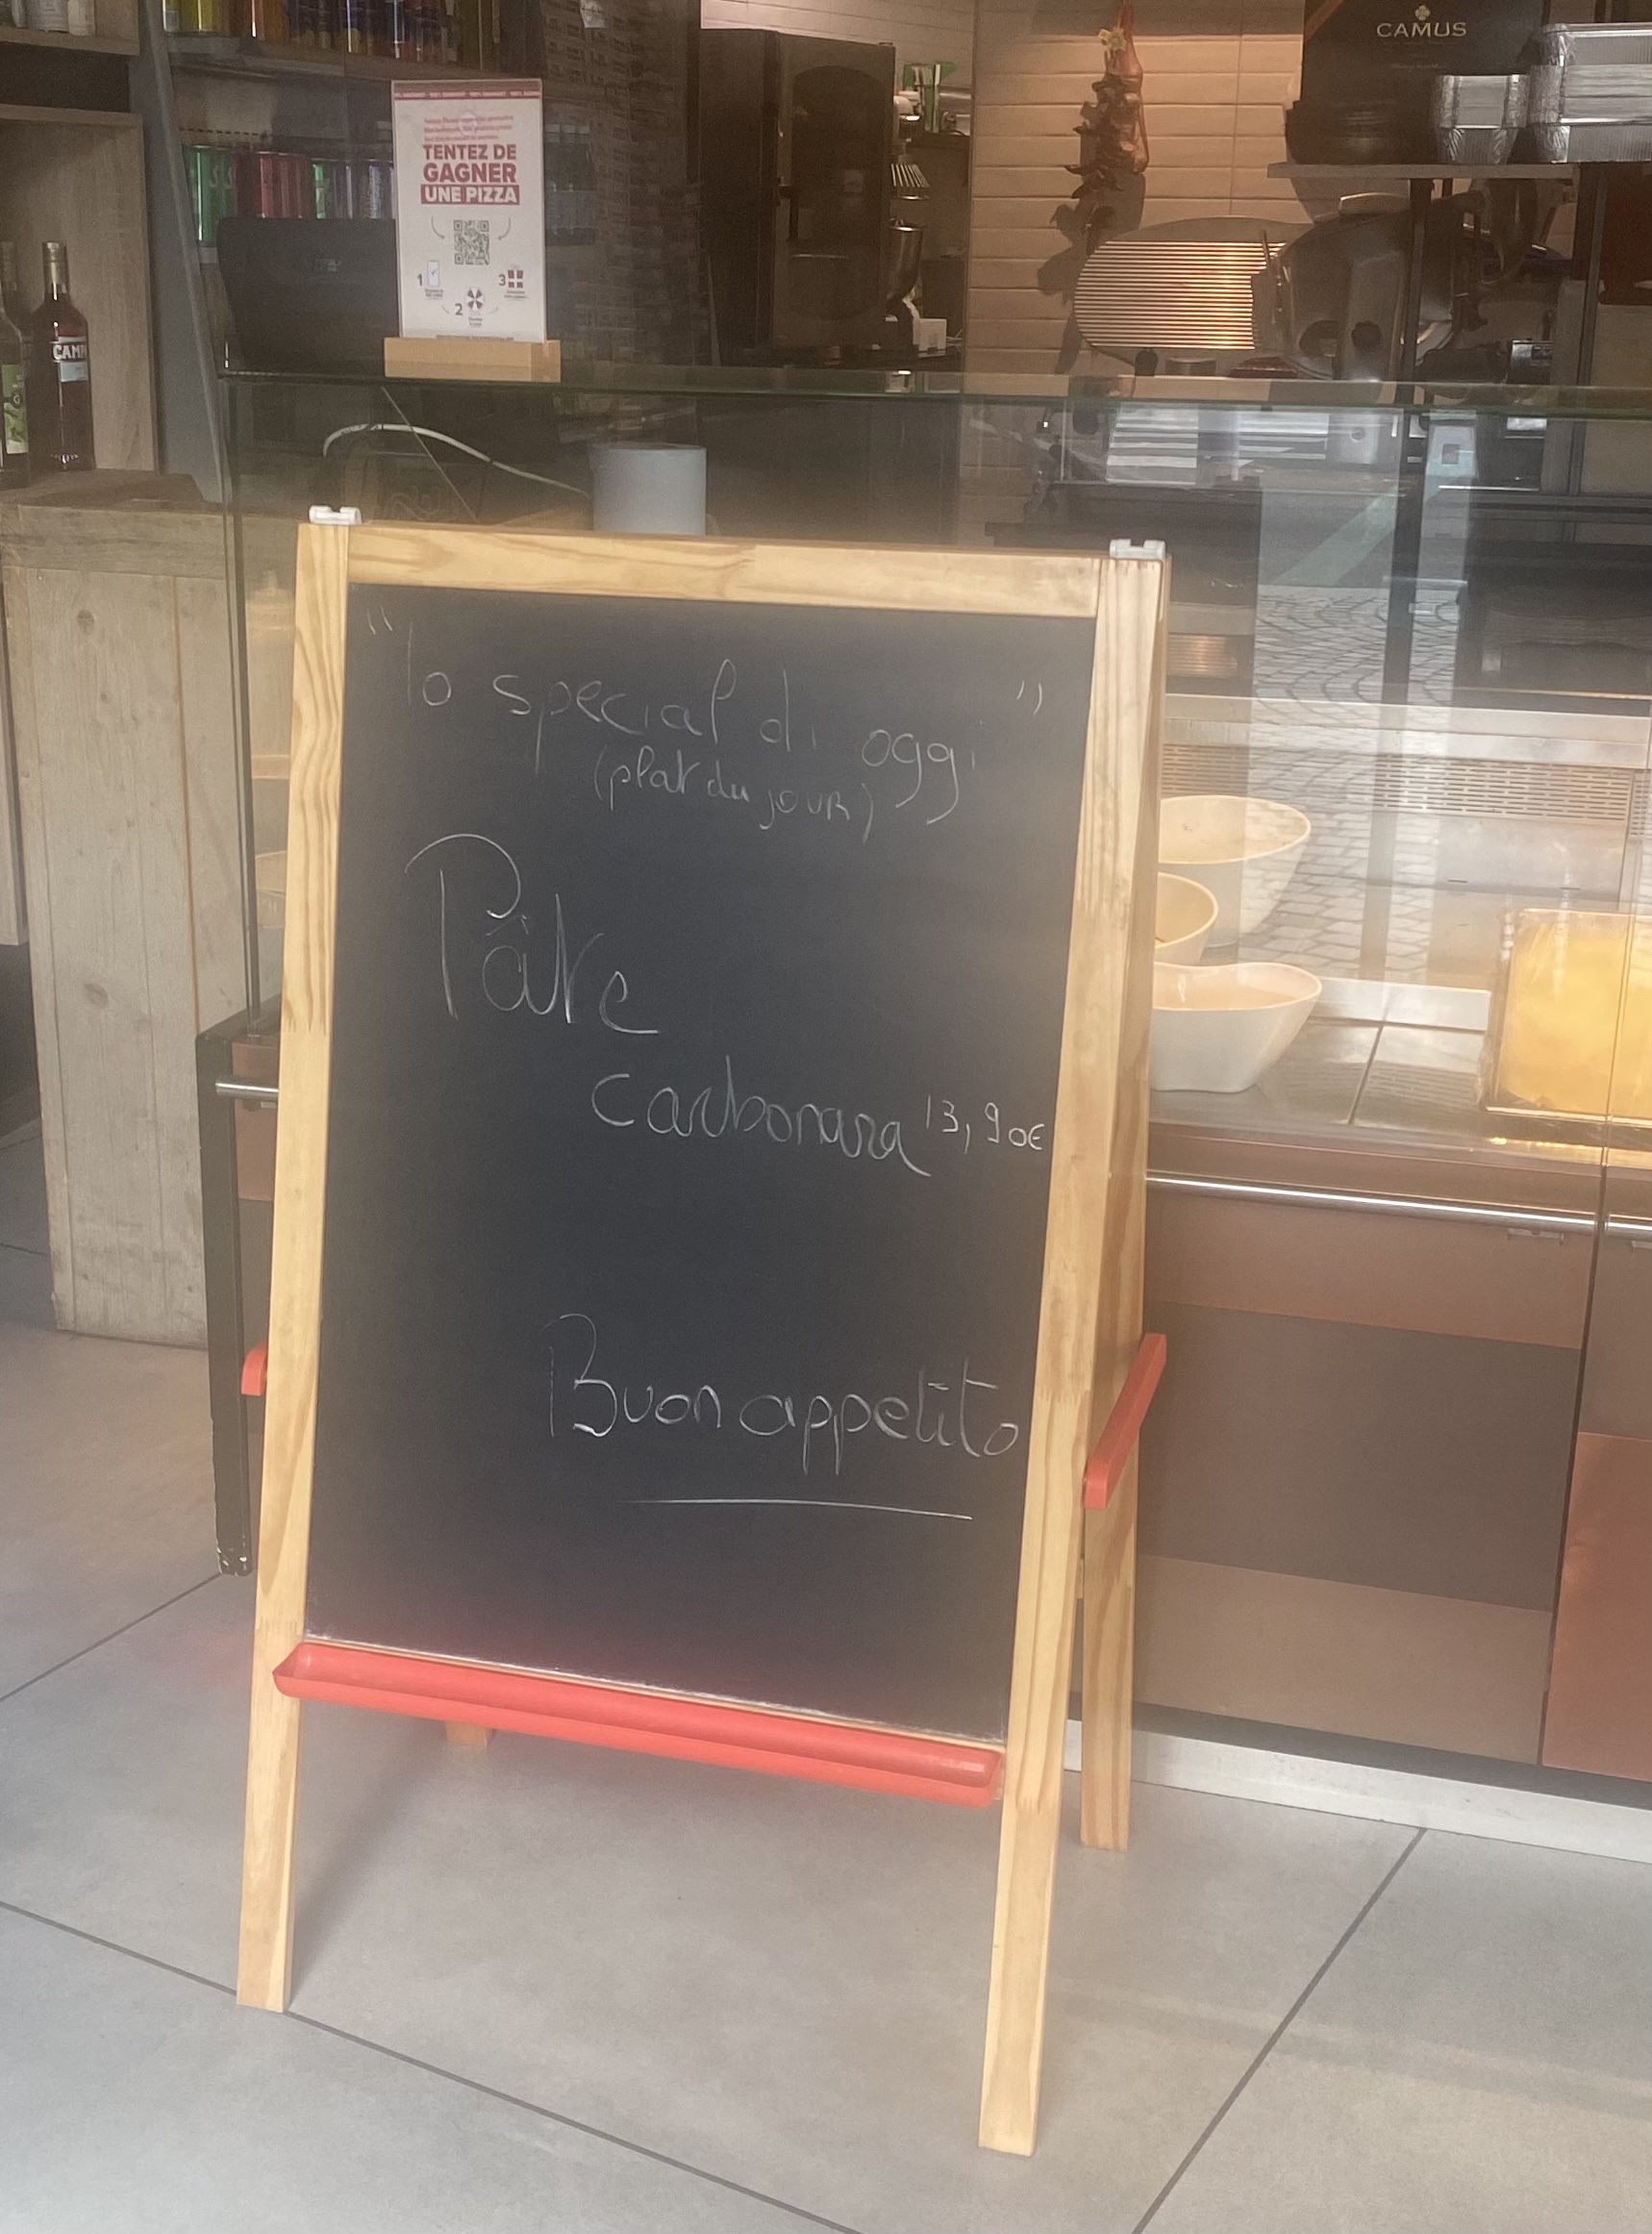 CAMUS
TENTEZ DE
GAGNER
UNE PIZZA
1
2
3
CAMP
"lo special di oggi"
(plat du jour)
Pâte
carbonara 13,90€
Buon appetito